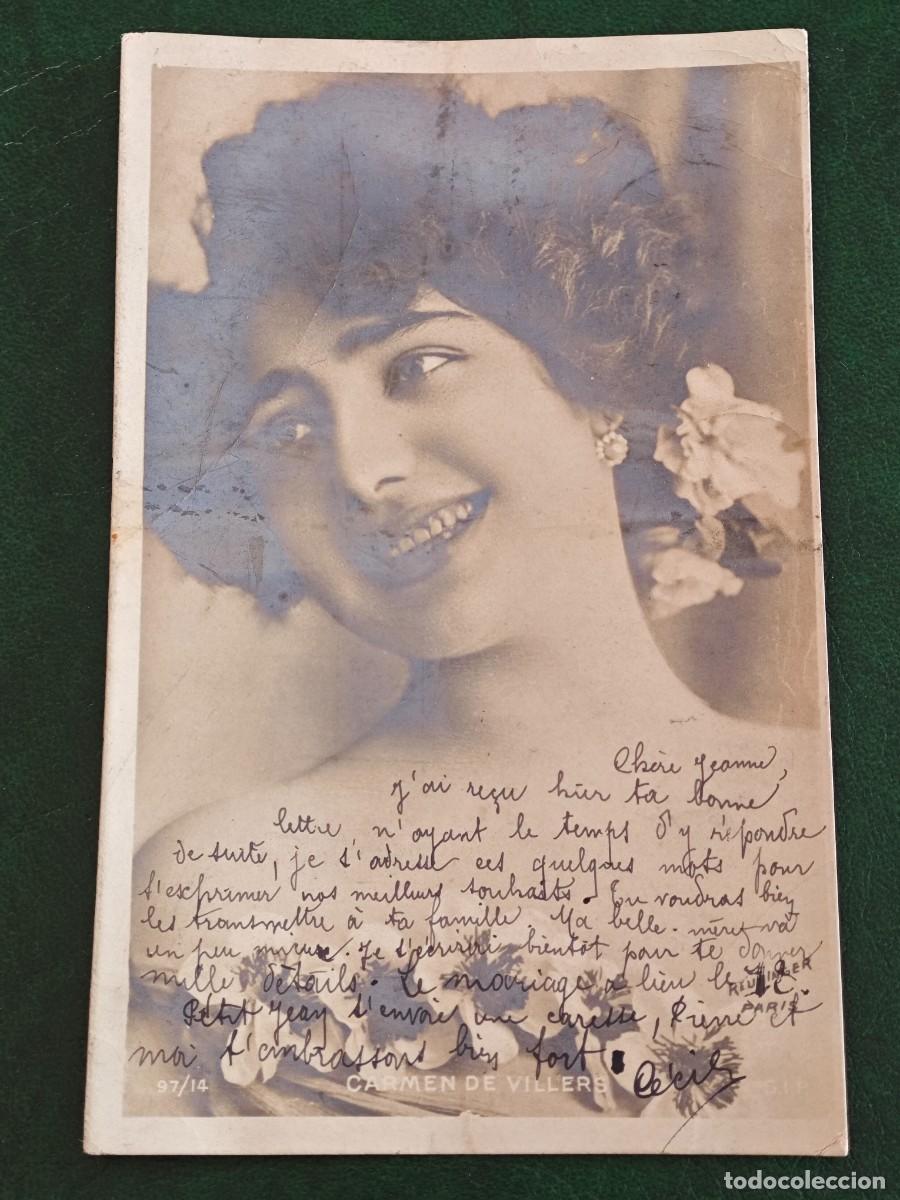 Chère Jeanne,
J'ai reçu hier ta bonne
lettre, n'ayant le temps d'y répondre
de suite, je t'adresse ces quelques mots pour
t'exprimer nos meilleurs souhaits. Tu voudras bien
les transmettre à ta famille. Ma belle-mère va
un peu mieux. Je t'écrirai bientôt pour te donner
mille détails. Le mariage a lieu le 12.
REUTLINGER
PARIS
Petit Jean t'envoie une caresse, Pierre et
moi t'embrassons bien fort.
Cécile
97/14
CARMEN DE VILLERS
todocoleccion